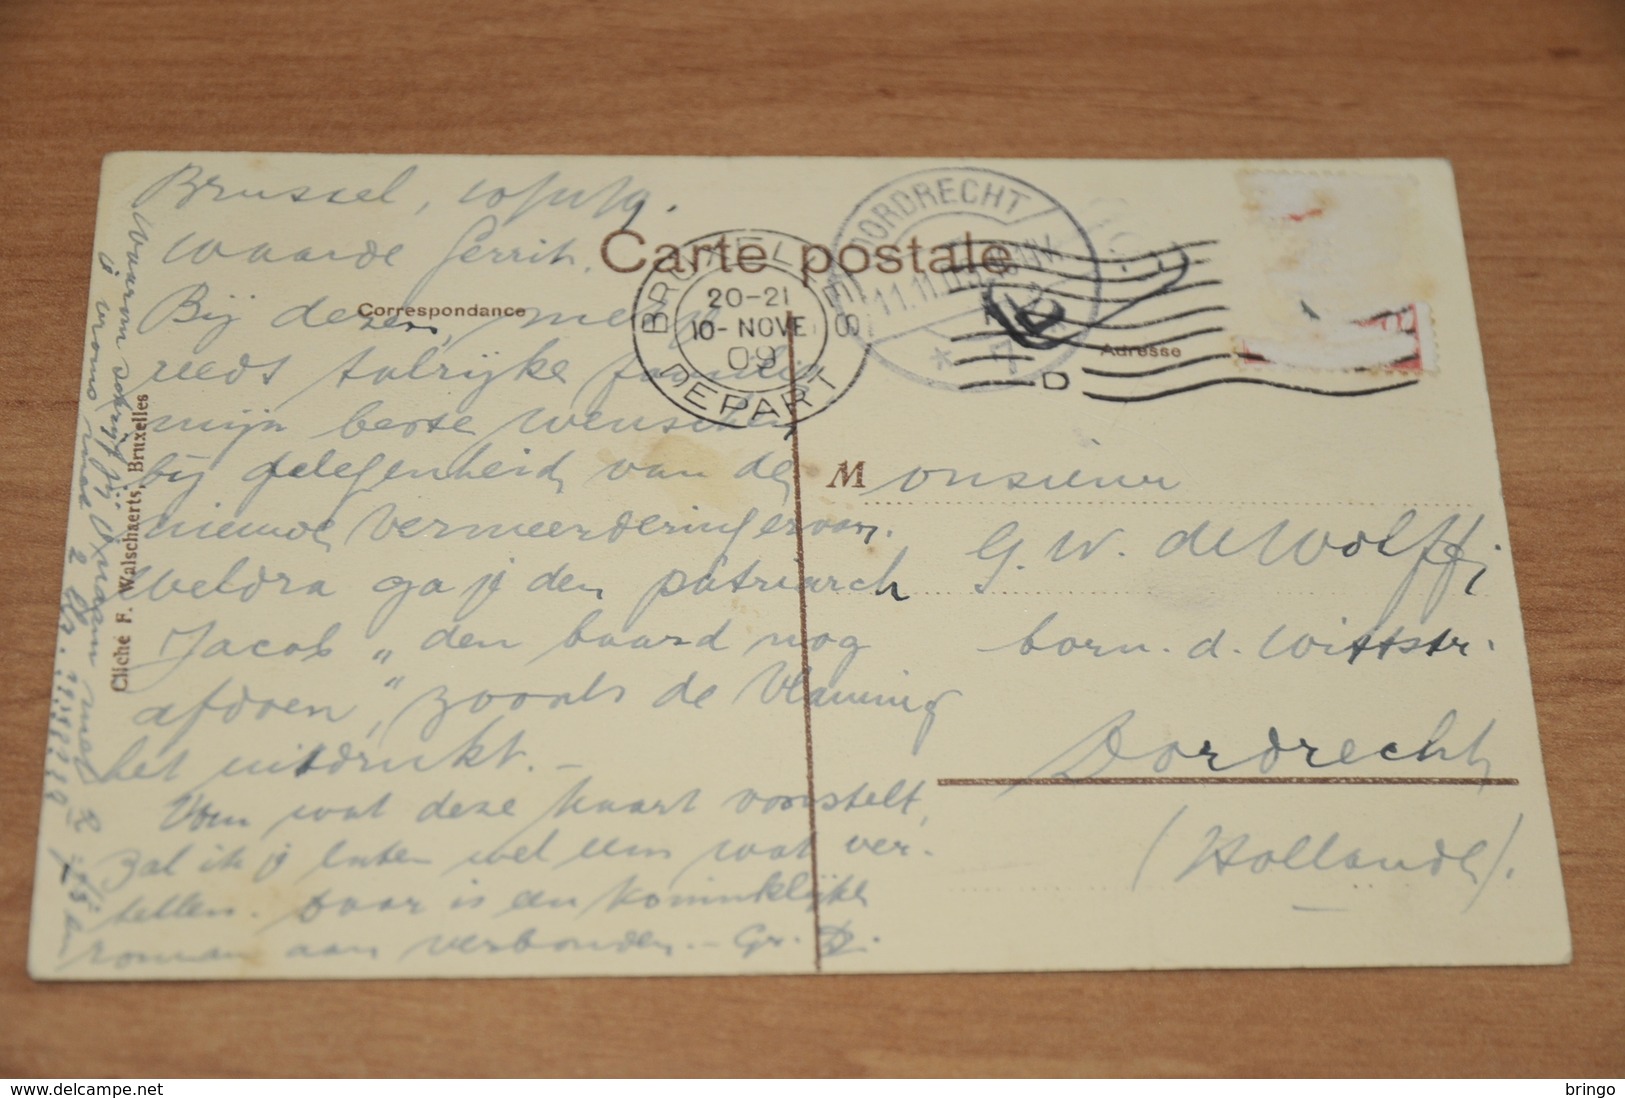 Brussel, 10/11/09.
Waarde Gerrit.
Carte postale
Correspondance
Adresse
BRUXELLES
20-21
10-NOVE
09
DEPART
DORDRECHT
11.11
D
Bij dezen,
reeds talrijke familie
mijn beste wenschen
bij gelegenheid van de
nieuwe vermeerdering ervan.
Weldra ga je den patriarch
Jacob „den baard nog
afdoen", zooals de Vlaming
het uitdrukt. –
Van wat deze kaart voorstelt,
Zal ik je later wel eens wat ver-
tellen. Daar is een koninklijke
roman aan verbonden. – Gr.
Waarom schrijf jij
Cliché F. Walschaerts, Bruxelles
Monsieur
G. W. de Wolff,
Corn. d. Wittstr.
Dordrecht
(Hollande).
bringo